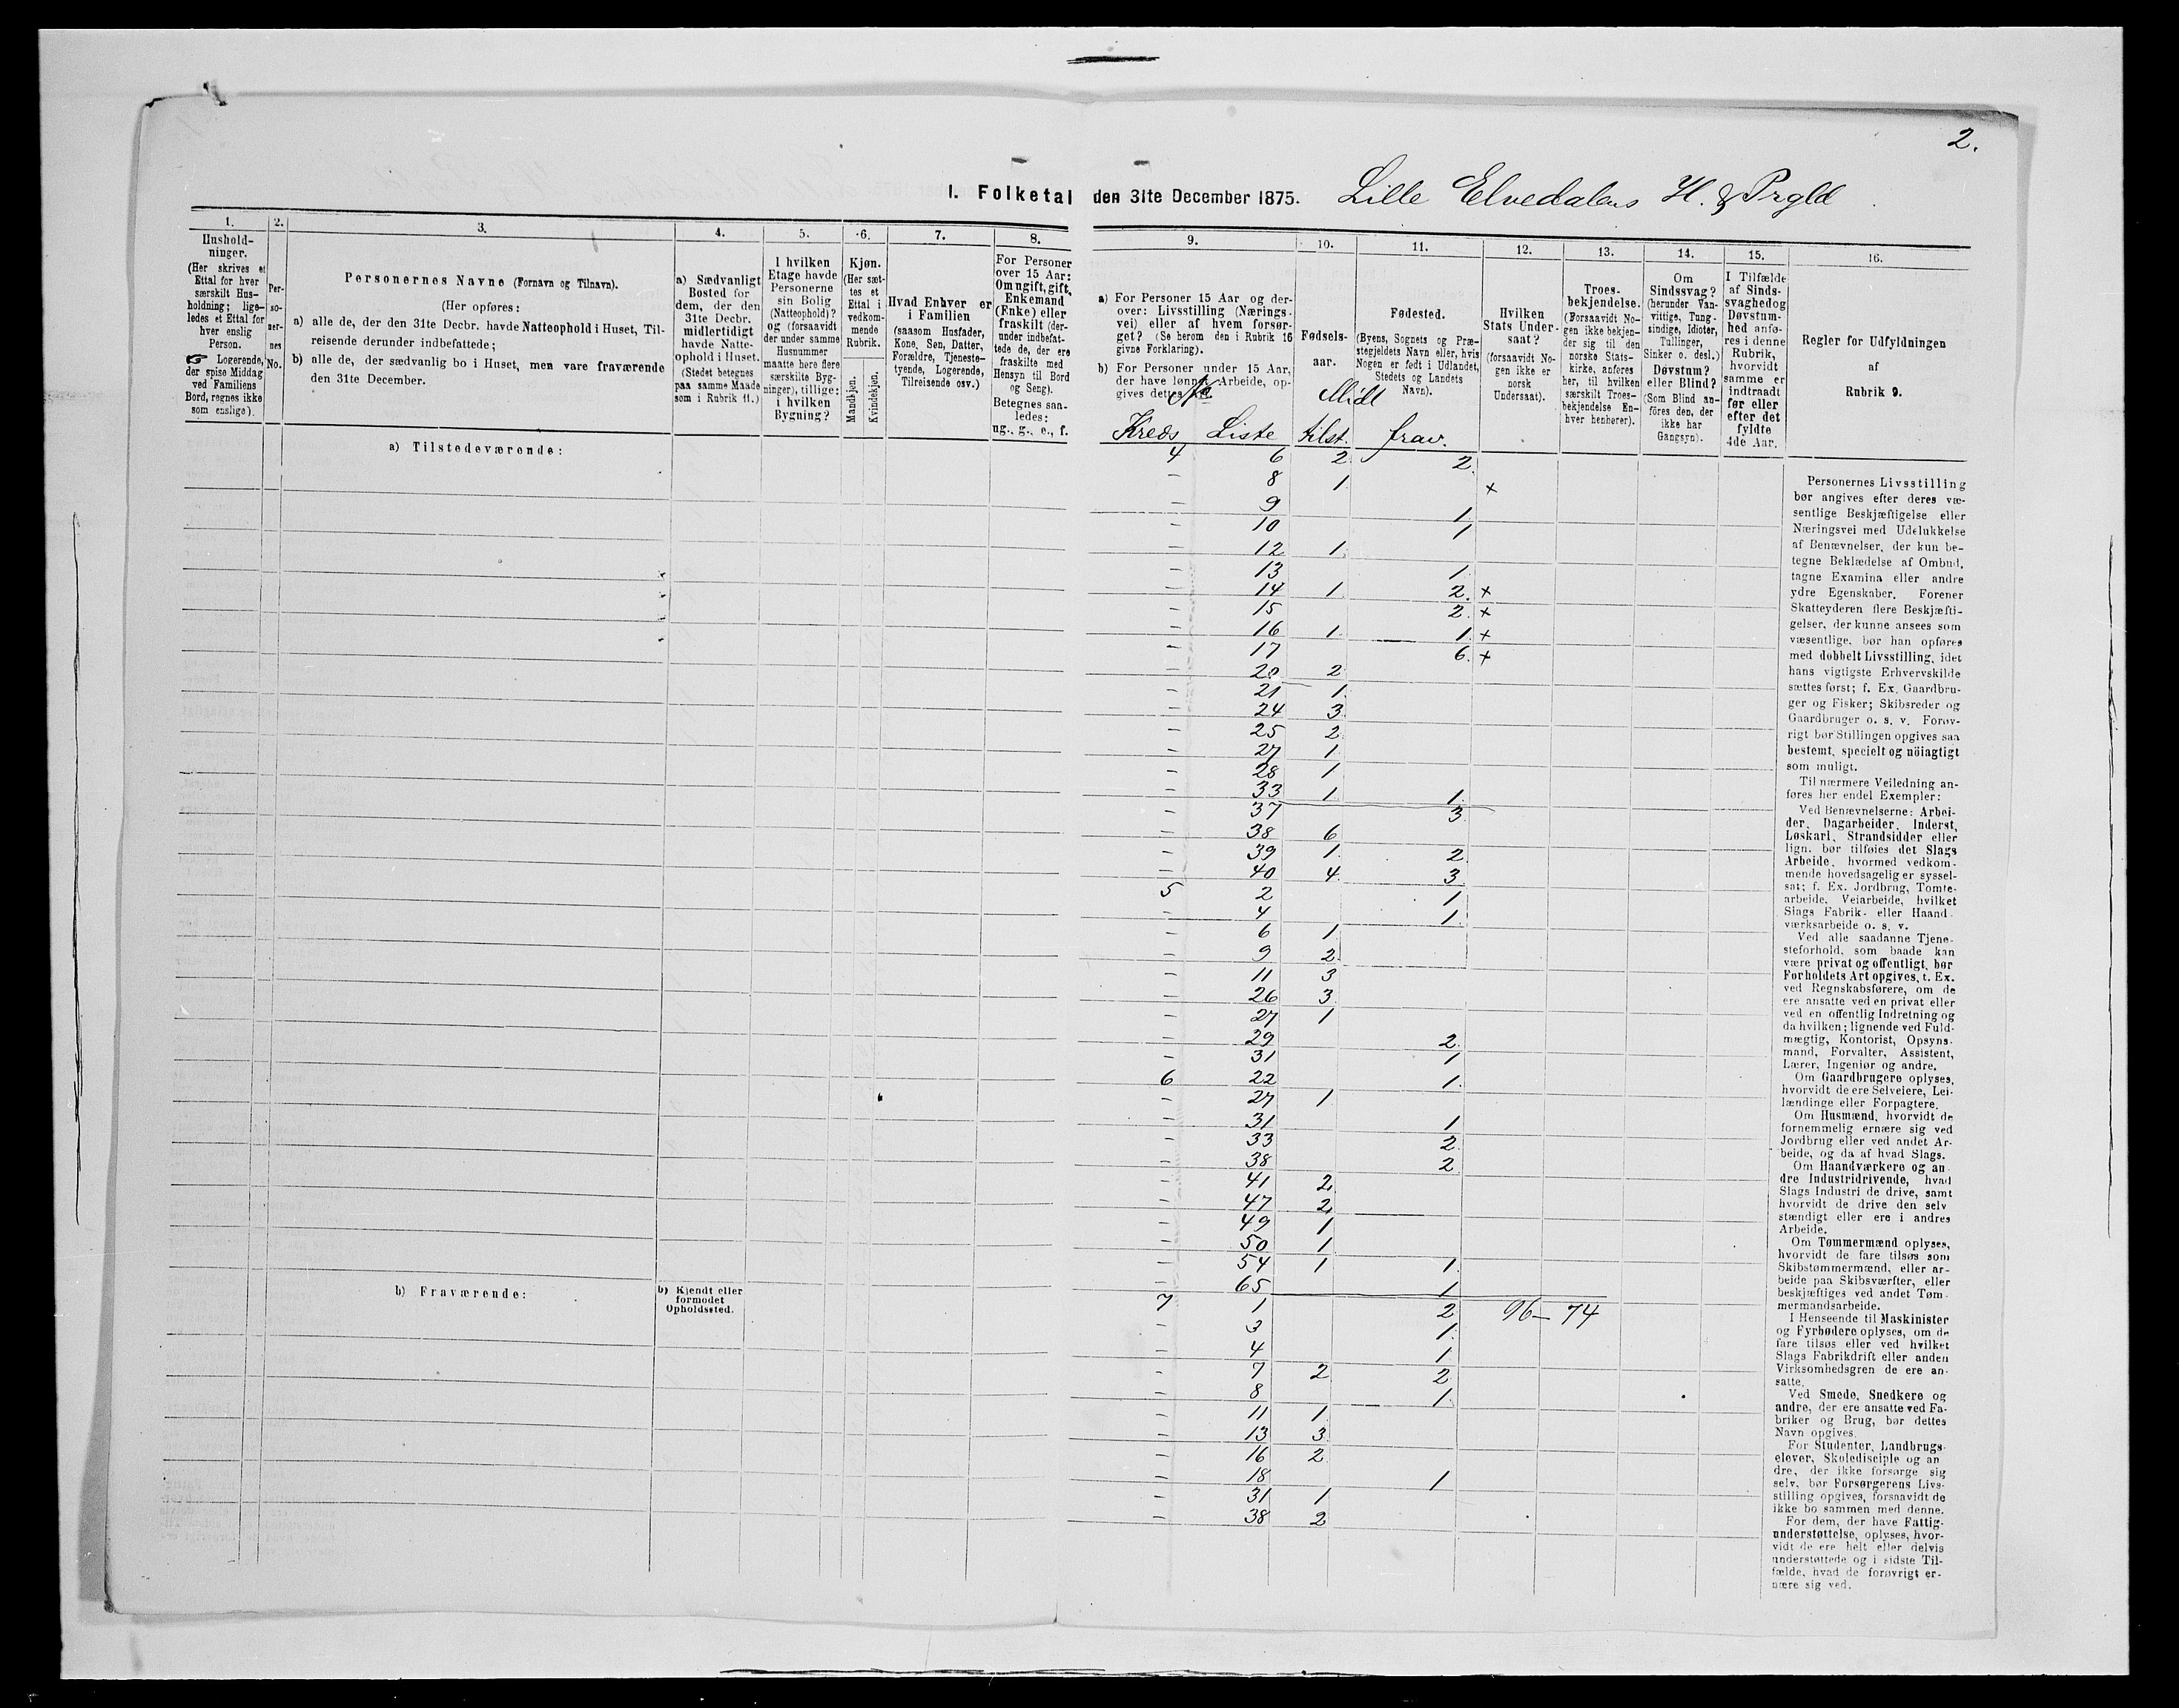 2.
I. Folketal den 31te December 1875. Lille Elvedalens H. & Prgld
1.
Hushold-
ninger.
(Her skrives et
Ettal for hver
særskilt Hus-
holdning; lige-
ledes et Ettal for
hver enslig
Person.
☞ Logerende,
der spise Middag
ved Familiens
Bord, regnes ikke
som enslige).
2.
Per-
so-
ner-
nes
No.
3.
Personernes Navne (Fornavn og Tilnavn).
(Her opføres:
a) alle de, der den 31te Decbr. havde Natteophold i Huset, Til-
reisende derunder indbefattede;
b) alle de, der sædvanlig bo i Huset, men vare fraværende
den 31te December.
4.
a) Sædvanligt
Bosted for
dem, der den
31te Decbr.
midlertidigt
havde Natte-
ophold i Huset.
(Stedet betegnes
paa samme Maade
som i Rubrik 11.)
5.
I hvilken
Etage havde
Personerne
sin Bolig
(Natteophold)?
og (forsaavidt
der under samme
Husnummer
maatte høre flere
særskilte Byg-
ninger), tillige:
i hvilken
Bygning?
6.
Kjøn.
(Her sæt-
tes et
Ettal i
vedkom-
mende
Rubrik.
Mandkjøn.
Kvindekjøn.
7.
Hvad Enhver er
i Familien
(saasom Husfader,
Kone, Søn, Datter,
Forældre, Tjeneste-
tyende, Logerende,
Tilreisende osv.)
8.
For Personer
over 15 Aar:
Om ugift, gift,
Enkemand
(Enke) eller
fraskilt (der-
under indbefat-
tede de, der ere
fraskilte med
Hensyn til Bord
og Seng).
Betegnes saa-
ledes:
ug., g., e., f.
9.
a) For Personer 15 Aar og der-
over: Livsstilling (Nærings-
vei) eller af hvem forsør-
get? (Se herom den i Rubrik 16
givne Forklaring).
b) For Personer under 15 Aar,
der have lønnet Arbeide, op-
gives dettes
10.
Fødsels-
aar.
11.
Fødested.
(Byens, Sognets og Præ-
stegjeldets Navn eller, hvis
Nogen er født i Udlandet,
Stedets og Landets
Navn).
12.
Hvilken
Stats Under-
saat?
(forsaavidt No-
gen ikke er
norsk
Undersaat).
13.
Troes-
bekjendelse.
(Forsaavidt No-
gen ikke bekjen-
der sig til den
norske Stats-
kirke, anføres
her, til hvilken
særskilt Troes-
bekjendelse En-
hver henhører).
14.
Om
Sindssvag?
(herunder Van-
vittige, Tung-
sindige, Idioter,
Tullinger,
Sinker o. desl.)
Døvstum?
eller Blind?
(Som Blind an-
føres den, der
ikke har
Gangsyn).
15.
I Tilfælde
af Sinds-
svaghed og
Døvstum-
hed anfø-
res i denne
Rubrik,
hvorvidt
samme er
indtraadt
før eller
efter det
fyldte
4de Aar.
16.
Regler for Udfyldningen
af
Rubrik 9.
No Midl
Kreds Liste tilst. frav.
a) Tilstedeværende:
4 6 2 2
- 8 1 ×
- 9 1
- 10 1
- 12 1
- 13 1
- 14 1 2. ×
- 15 2. ×
- 16 1 1. ×
- 17 6. ×
- 20 2
- 21 1
- 24 3
- 25 2
- 27 1
- 28 1
- 33 1 1
- 37 3
- 38 6
- 39 1 2
- 40 4 3
5 2 1
- 4 1
- 6 1
- 9 2
- 11 3
- 26 3
- 27 1
- 29 2
- 31 1
6 22 1
- 27 1
- 31 1
- 33 2
- 38 2
- 41 2
- 47 2
- 49 1
- 50 1
- 54 1 1
- 65 1
7 1 2 96-74
- 3 1
- 4 1
- 7 2 2
- 8 1
- 11 1
- 13 3
- 16 2
- 18 1
- 31 1
- 38 2
b) Fraværende:
b) Kjendt eller
formodet
Opholdssted.
Personernes Livsstilling
bør angives efter deres væ-
sentlige Beskjæftigelse eller
Næringsvei med Udelukkelse
af Benævnelser, der kun be-
tegne Beklædelse af Ombud,
tagne Examina eller andre
ydre Egenskaber. Forener
Skatteyderen flere Beskjæfti-
gelser, der kunne ansees som
væsentlige, bør han opføres
med dobbelt Livsstilling, idet
hans vigtigste Erhvervskilde
sættes først; f. Ex. Gaardbru-
ger og Fisker; Skibsreder og
Gaardbruger o. s. v. Forøv-
rigt bør Stillingen opgives saa
bestemt, specielt og nöiagtigt
som muligt.
Til nærmere Veiledning an-
føres her endel Exempler:
Ved Benævnelserne: Arbei-
der, Dagarbeider, Inderst,
Løskarl, Strandsidder eller
lign. bør tilføies det Slags
Arbeide, hvormed vedkom-
mende hovedsagelig er syssel-
sat; f. Ex. Jordbrug, Tomte-
arbeide, Veiarbeide, hvilket
Slags Fabrik- eller Haand-
værksarbeide o. s. v.
Ved alle saadanne Tjene-
steforhold, som baade kan
være privat og offentligt, bør
Forholdets Art opgives, t. Ex.
ved Regnskabsførere, om de
ere ansatte ved en privat eller
ved en offentlig Indretning og
da hvilken; lignende ved Fuld-
mægtig, Kontorist, Opsyns-
mand, Forvalter, Assistent,
Lærer, Ingeniør og andre.
Om Gaardbrugere oplyses,
hvorvidt de ere Selveiere, Lei-
lændinge eller Forpagtere.
Om Husmænd, hvorvidt de
fornemmelig ernære sig ved
Jordbrug eller ved andet Ar-
beide, og da af hvad Slags.
Om Haandværkere og an-
dre Industridrivende, hvad
Slags Industri de drive, samt
hvorvidt de drive den selv-
stændigt eller ere i andres
Arbeide.
Om Tømmermænd oplyses,
hvorvidt de fare tilsøs som
Skibstømmermænd, eller ar-
beide paa Skibsværfter, eller
beskjæftiges ved andet Tøm-
mermandsarbeide.
I Henseende til Maskinister
og Fyrbødere oplyses, om de
fare tilsøs eller ved hvilket
Slags Fabrikdrift eller anden
Virksomhedsgren de ere an-
satte.
Ved Smede, Snedkere og
andre, der ere ansatte ved Fa-
briker og Brug, bør dettes
Navn opgives.
For Studenter, Landbrugs-
elever, Skoledisciple og an-
dre, der ikke forsørge sig
selv, bør Forsørgerens Livs-
stilling opgives, forsaavidt de
ikke bo sammen med denne.
For dem, der have Fattig-
understøttelse, oplyses, hvor-
vidt de ere helt eller delvis
understøttede og i sidste Til-
fælde, hvad de forøvrigt er-
nære sig ved.